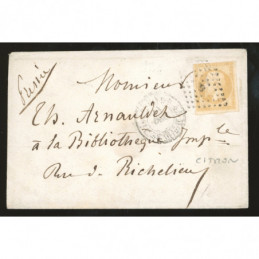 Pressée
Monsieur
Th. Arnauldet
à la Bibliothèque Imp^le
Rue de Richelieu
CITRON